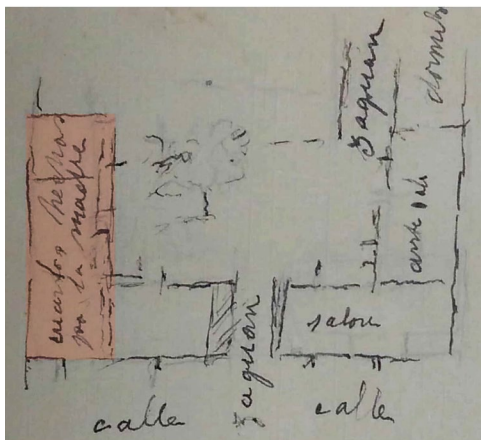 cuartos hechos
por la madre
Zaguan
dormit
ante sala
salon
Zaguan
calle
calle